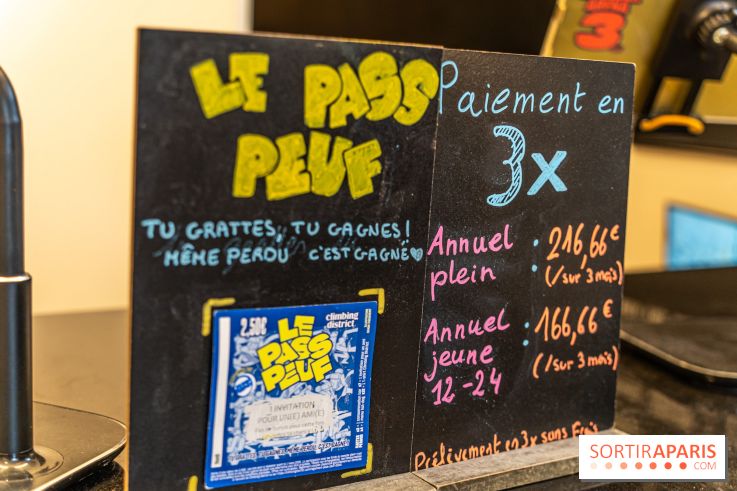 LE PASS
PEUF
TU GRATTES, TU GAGNES!
MÊME PERDU C'EST GAGNÉ
2,50€
climbing
district
LE
PASS
PEUF
1 INVITATION
POUR UN(E) AMI(E)
Paiement en
3x
Annuel
plein
: 216,66€
(/sur 3 mois)
Annuel
jeune
12-24
: 166,66€
(/sur 3 mois)
Prélèvement en 3x sans frais
SORTIRAPARIS
.COM